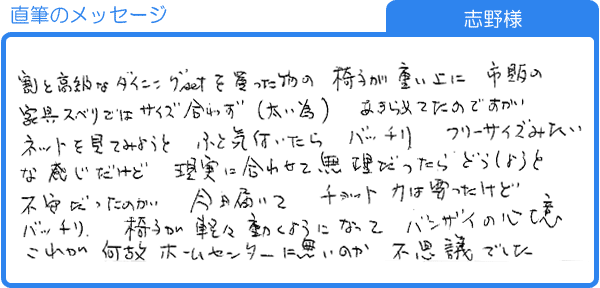 直筆のメッセージ
志野様
割と高級なダイニングsetを買った物の 椅子が重い上に 市販の
家具スベリではサイズ合わず(太い為) あきらめてたのですが
ネットを見てみようと ふと気付いたら バッチリ フリーサイズみたい
な感じだけど 現実に合わせて無理だったらどうしようと
不安だったのが 今日届いて チョット力は要ったけど
バッチリ. 椅子が軽々動くようになって バンザイの心境
これが何故ホームセンターに無いのか 不思議でした